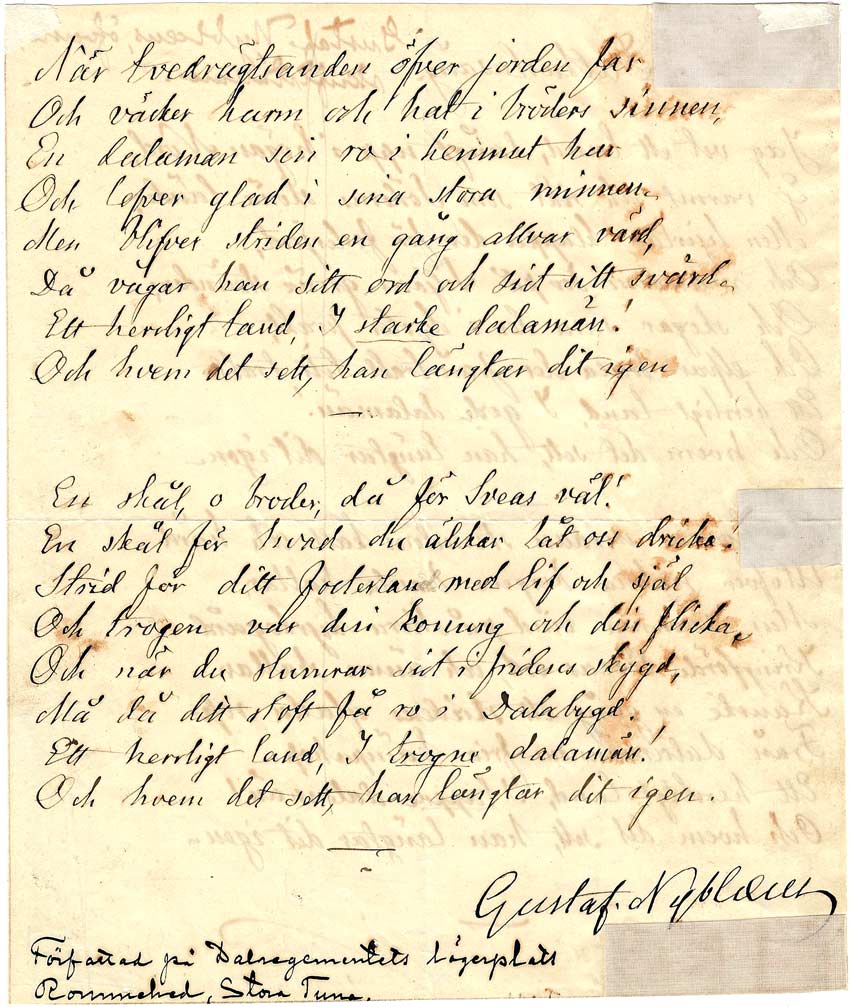 När tvedrägtsanden öfver jorden far
Och väcker harm och hat i bröders sinnen,
En dalaman sin ro i hemmet har
Och lefver glad i sina stora minnen.
Men blifver striden en gång allvar värd,
Då vågar han sitt ord och sist sitt svärd.
Ett herrligt land, I starke dalamän!
Och hvem det sett, han längtar dit igen
En skål, o broder, då för Sveas väl!
En skål för hvad du älskar låt oss dricka!
Strid för ditt fosterland med lif och själ
Och trogen var din konung och din flicka,
Och när du slumrar sist i fridens skygd,
Må då ditt stoft få ro i Dalabygd.
Ett herrligt land, I trogne dalamän!
Och hvem det sett, han längtar dit igen.
Gustaf Nyblæus
Författad på Dalregementets lägerplats
Rommehed, Stora Tuna.